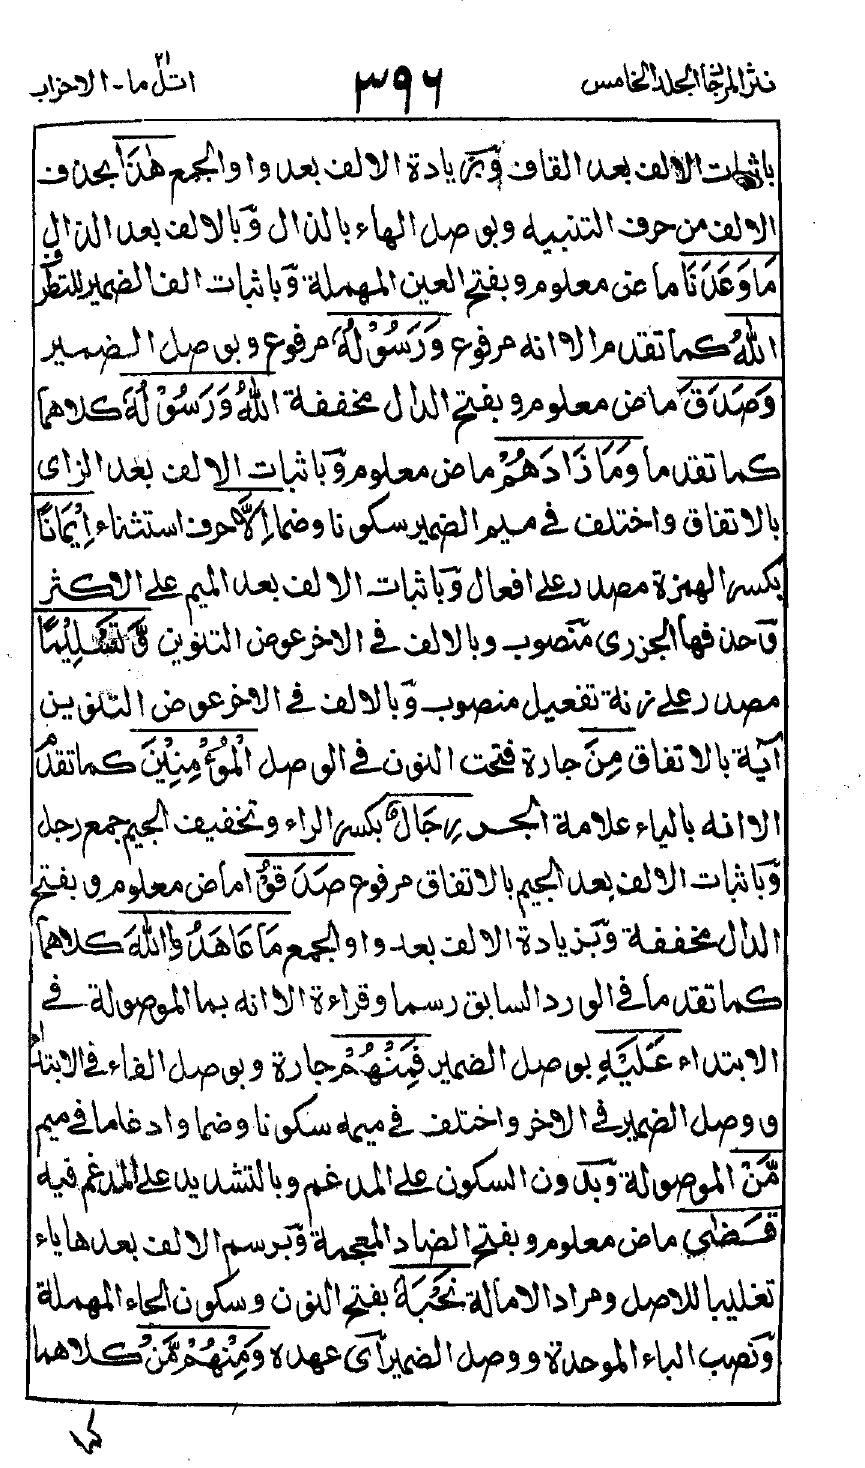 نثر المرجان المجلد الخامس ٣٩٦ اتل ما - الاحزاب ٢١
باثبات الالف بعد القاف وبزيادة الالف بعد واو الجمع هٰذَا بحذف
الالف من حرف التنبيه وبوصل الهاء بالذال وبالالف بعد الذال
مَا وَعَدَنَا ماض معلوم وبفتح العين المهملة وباثبات الف الضمير للتطرف
اللهُ كما تقدم الا انه مرفوع وَرَسُوْلُهٗ مرفوع وبوصل الضمير
وَصَدَقَ ماض معلوم وبفتح الدال مخففة اللهُ وَرَسُوْلُهٗ كلاهما
كما تقدما وَمَا زَادَهُمْ ماض معلوم وباثبات الالف بعد الزاى
بالاتفاق واختلف في ميم الضمير سكونا وضما اِلَّا حرف استثناء اِيْمَانًا
بكسر الهمزة مصدر على افعال وباثبات الالف بعد الميم على الاكثر
وحذفها الجزرى منصوب وبالالف في الاخر عوض التنوين وَّتَسْلِيْمًا
مصدر على زنة تفعيل منصوب وبالالف في الاخر عوض التنوين
آية بالاتفاق مِنَ جارة فتحت النون في الوصل الْمُؤْمِنِيْنَ كما تقدم
الا انه بالياء علامة الجر رِجَالٌ بكسر الراء وتخفيف الجيم جمع رجل
وباثبات الالف بعد الجيم بالاتفاق مرفوع صَدَقُوْا ماض معلوم وبفتح
الدال مخففة وبزيادة الالف بعد واو الجمع مَا عَاهَدُوا اللهَ كلاهما
كما تقدما في الورد السابق رسما وقراءة الا انه بما الموصولة في
الابتداء عَلَيْهِ بوصل الضمير فَمِنْهُمْ جارة وبوصل الفاء في الابتداء
ووصل الضمير في الاخر واختلف في ميمه سكونا وضما وادغاما في ميم
مَّنْ الموصولة وبدون السكون على المدغم وبالتشديد على المدغم فيه
قَضٰى ماض معلوم وبفتح الضاد المعجمة وبرسم الالف بعدها ياء
تغليبا للاصل ومراد الامالة نَحْبَهٗ بفتح النون وسكون الحاء المهملة
ونصب الباء الموحدة ووصل الضمير اى عهده وَمِنْهُمْ مَّنْ كلاهما
كما